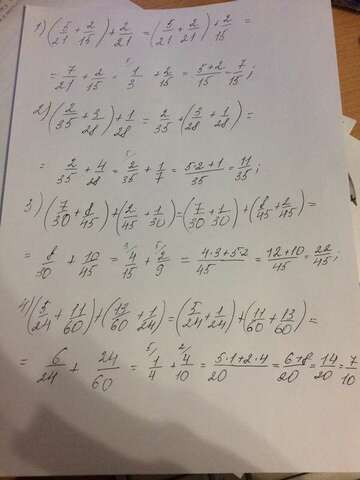 1) (5/21 + 2/15) + 2/21 = (5/21 + 2/21) + 2/15 =
= 7/21 + 2/15 = 1/3 + 2/15 = 5+2/15 = 7/15;
2) (2/35 + 3/28) + 1/28 = 2/35 + (3/28 + 1/28) =
= 2/35 + 4/28 = 2/35 + 1/7 = 5·2+1/35 = 11/35;
3) (7/30 + 8/45) + (2/45 + 1/30) = (7/30 + 1/30) + (8/45 + 2/45) =
= 8/30 + 10/45 = 4/15 + 2/9 = 4·3+5·2/45 = 12+10/45 = 22/45;
4) (5/24 + 11/60) + (13/60 + 1/24) = (5/24 + 1/24) + (11/60 + 13/60) =
= 6/24 + 24/60 = 1/4 + 4/10 = 5·1+2·4/20 = 6+8/20 = 14/20 = 7/10